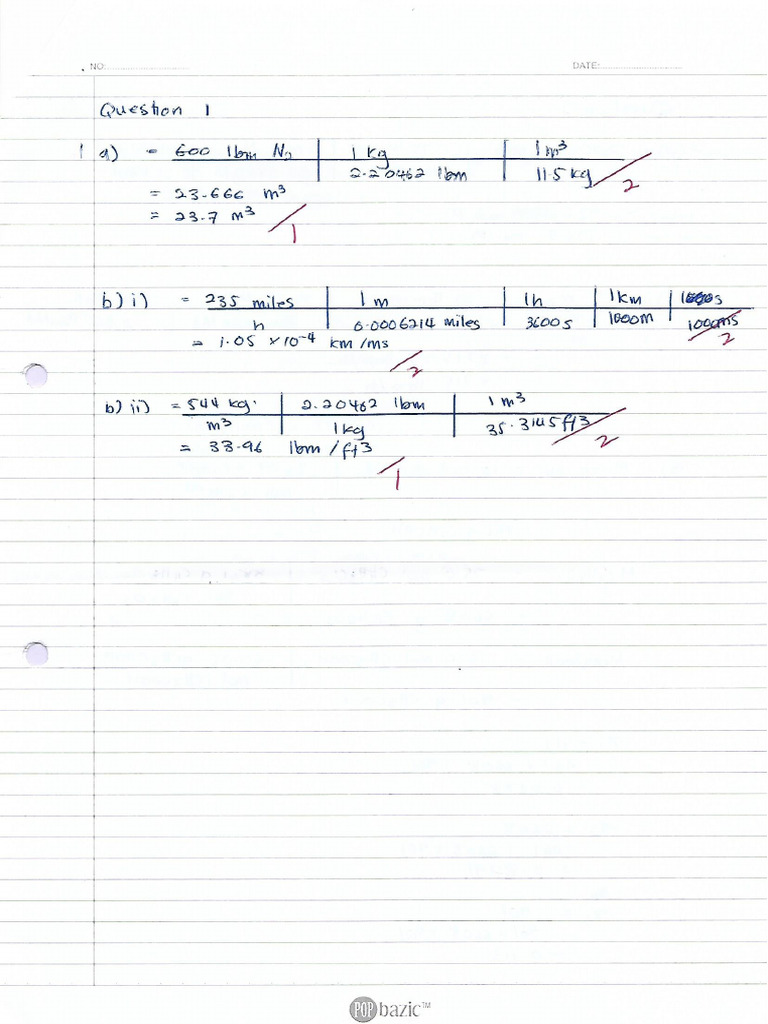 NO:
DATE:
Question 1
1 a) = 600 lbm N2 | 1 kg | 1 m³
2.20462 lbm | 11.5 kg / 2
= 23.666 m³
= 23.7 m³ / 1
b) i) = 235 miles | 1 m | 1h | 1 km | 1 s
h | 0.0006214 miles | 3600 s | 1000m | 1000ms / 2
= 1.05 x 10⁻⁴ km/ms / 2
b) ii) = 544 kg | 2.20462 lbm | 1 m³
m³ | 1 kg | 35.3145 ft3 / 2
= 33.96 lbm/ft3 / 1
POP bazic™